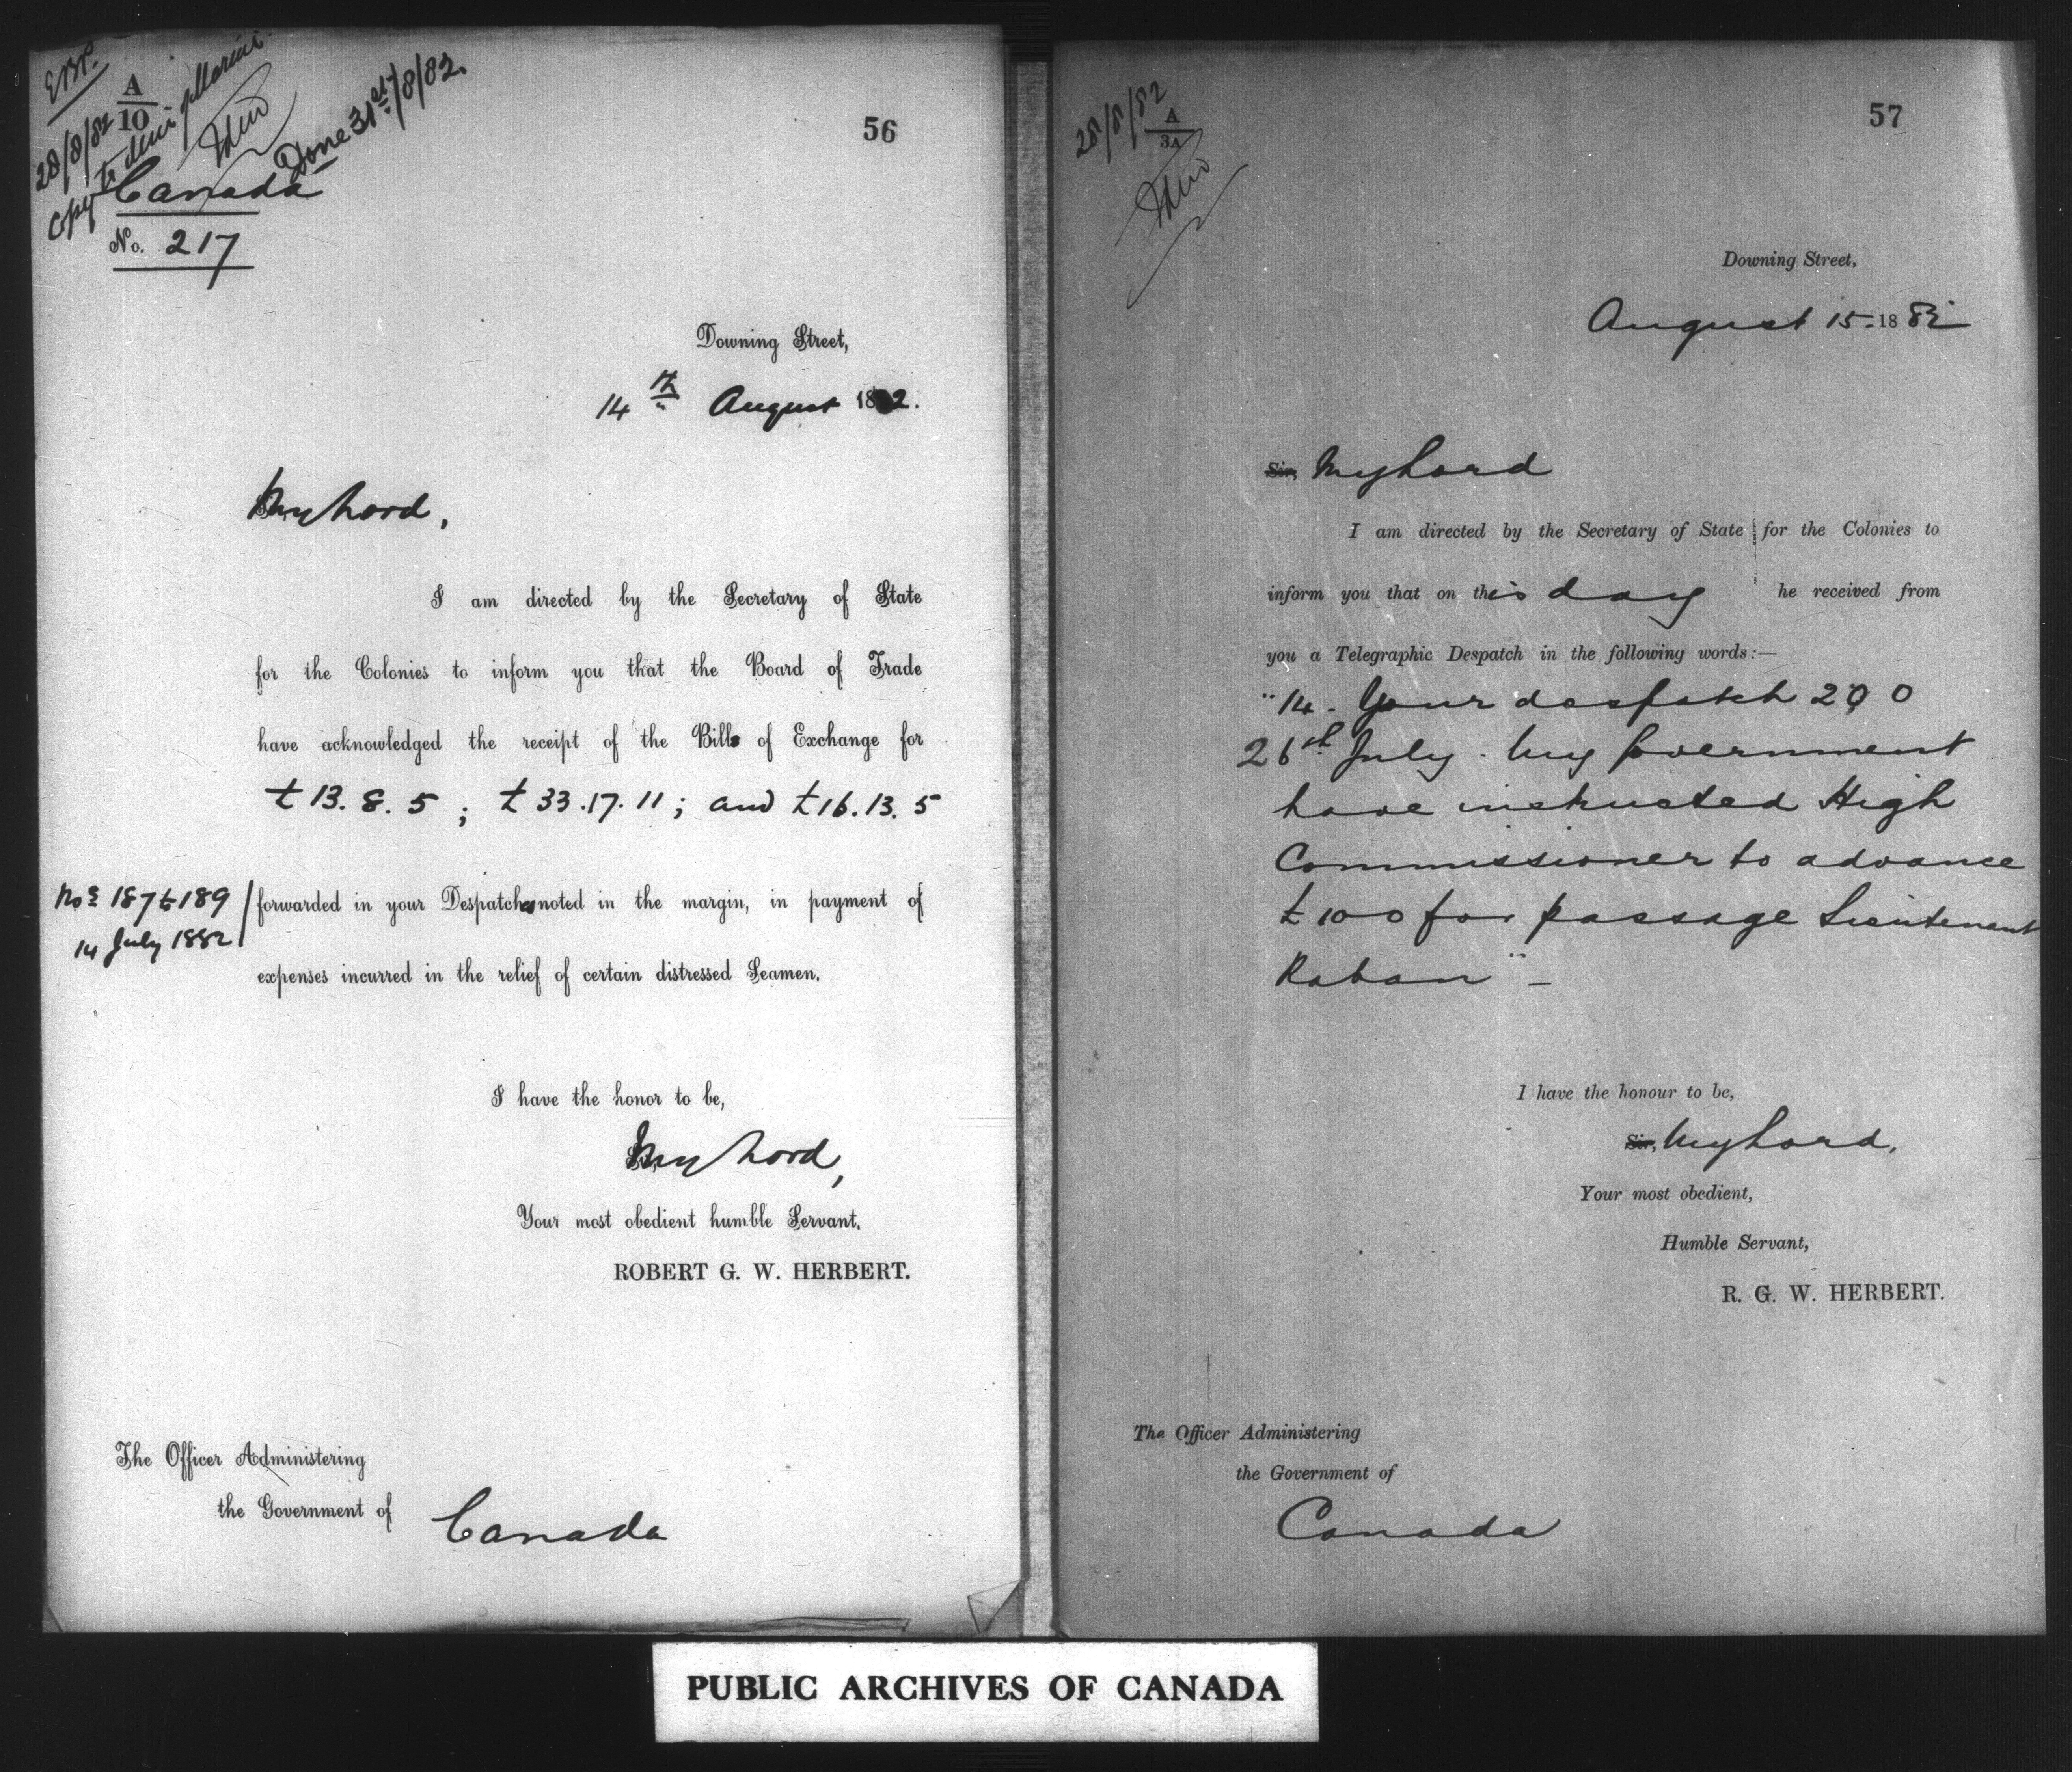 28/8/82
A
10
Copy to Min: of Marine
Done 31st/8/82.
56
Canada
No. 217
Downing Street,
14th August 1882.
My Lord,
I am directed by the Secretary of State
for the Colonies to inform you that the Board of Trade
have acknowledged the receipt of the Bills of Exchange for
£13. 8. 5 ; £33.17.11 ; and £16.13.5
Nos 187 to 189
14 July 1882
forwarded in your Despatches noted in the margin, in payment of
expenses incurred in the relief of certain distressed Seamen.
I have the honor to be,
My Lord,
Your most obedient humble Servant,
ROBERT G. W. HERBERT.
The Officer Administering
the Government of
Canada
28/8/82
A
3A
57
Downing Street,
August 15 - 1882
Sir, My Lord
I am directed by the Secretary of State for the Colonies to
inform you that on this day he received from
you a Telegraphic Despatch in the following words:—
"14 - Your despatch 200
26th July. My Government
have instructed High
Commissioner to advance
£100 for passage Lieutenant
Raban" -
I have the honour to be,
Sir, My Lord,
Your most obedient,
Humble Servant,
R. G. W. HERBERT.
The Officer Administering
the Government of
Canada
PUBLIC ARCHIVES OF CANADA